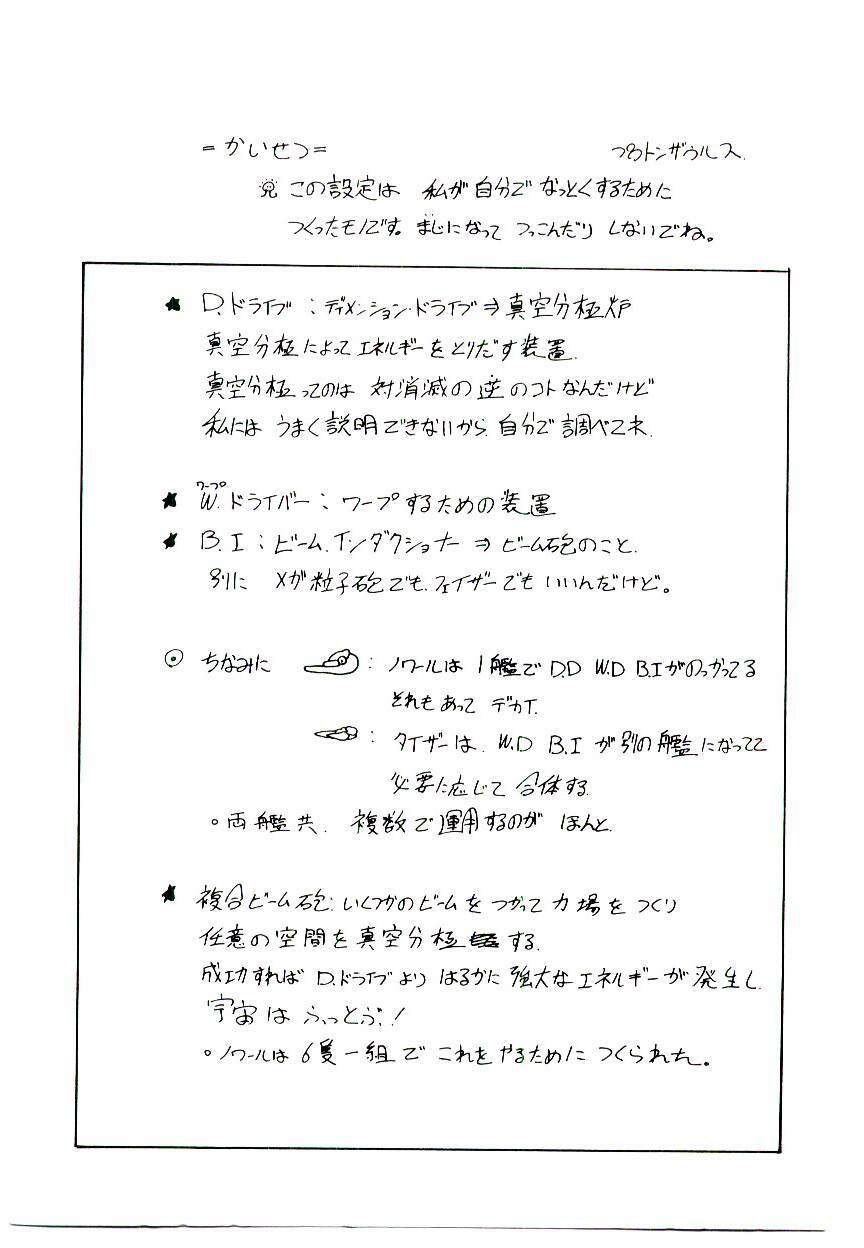 = かいせつ =
つるトンザウルス.
※ この設定は 私が自分で なっとくするために
つくったモノです。まじになって つっこんだり しないでね。
★ D.ドライブ : ディメンション・ドライブ ⇒ 真空分極炉
真空分極によって エネルギーをとりだす装置.
真空分極ってのは 対消滅の逆のコトなんだけど
私には うまく説明できないから. 自分で調べてネ.
ワープ
★ W.ドライバー : ワープするための装置
★ B.I : ビーム.インダクショナー ⇒ ビーム砲のこと.
別に メガ粒子砲でも.フェイザーでも いいんだけど。
◎ ちなみに : ノワールは 1艦で D.D W.D B.Iがのっかってる
それもあって デカイ.
: タイザーは. W.D B.I が別の艦になってて
必要に応じて 合体する.
○両艦共. 複数で運用するのが ほんと.
★ 複合ビーム砲: いくつかのビームを つかって 力場を つくり
任意の空間を真空分極 する.
成功すれば D.ドライブより はるかに 強大な エネルギーが 発生し.
宇宙は ふっとぶ!
○ノワールは 6隻一組で これをやるために つくられた。